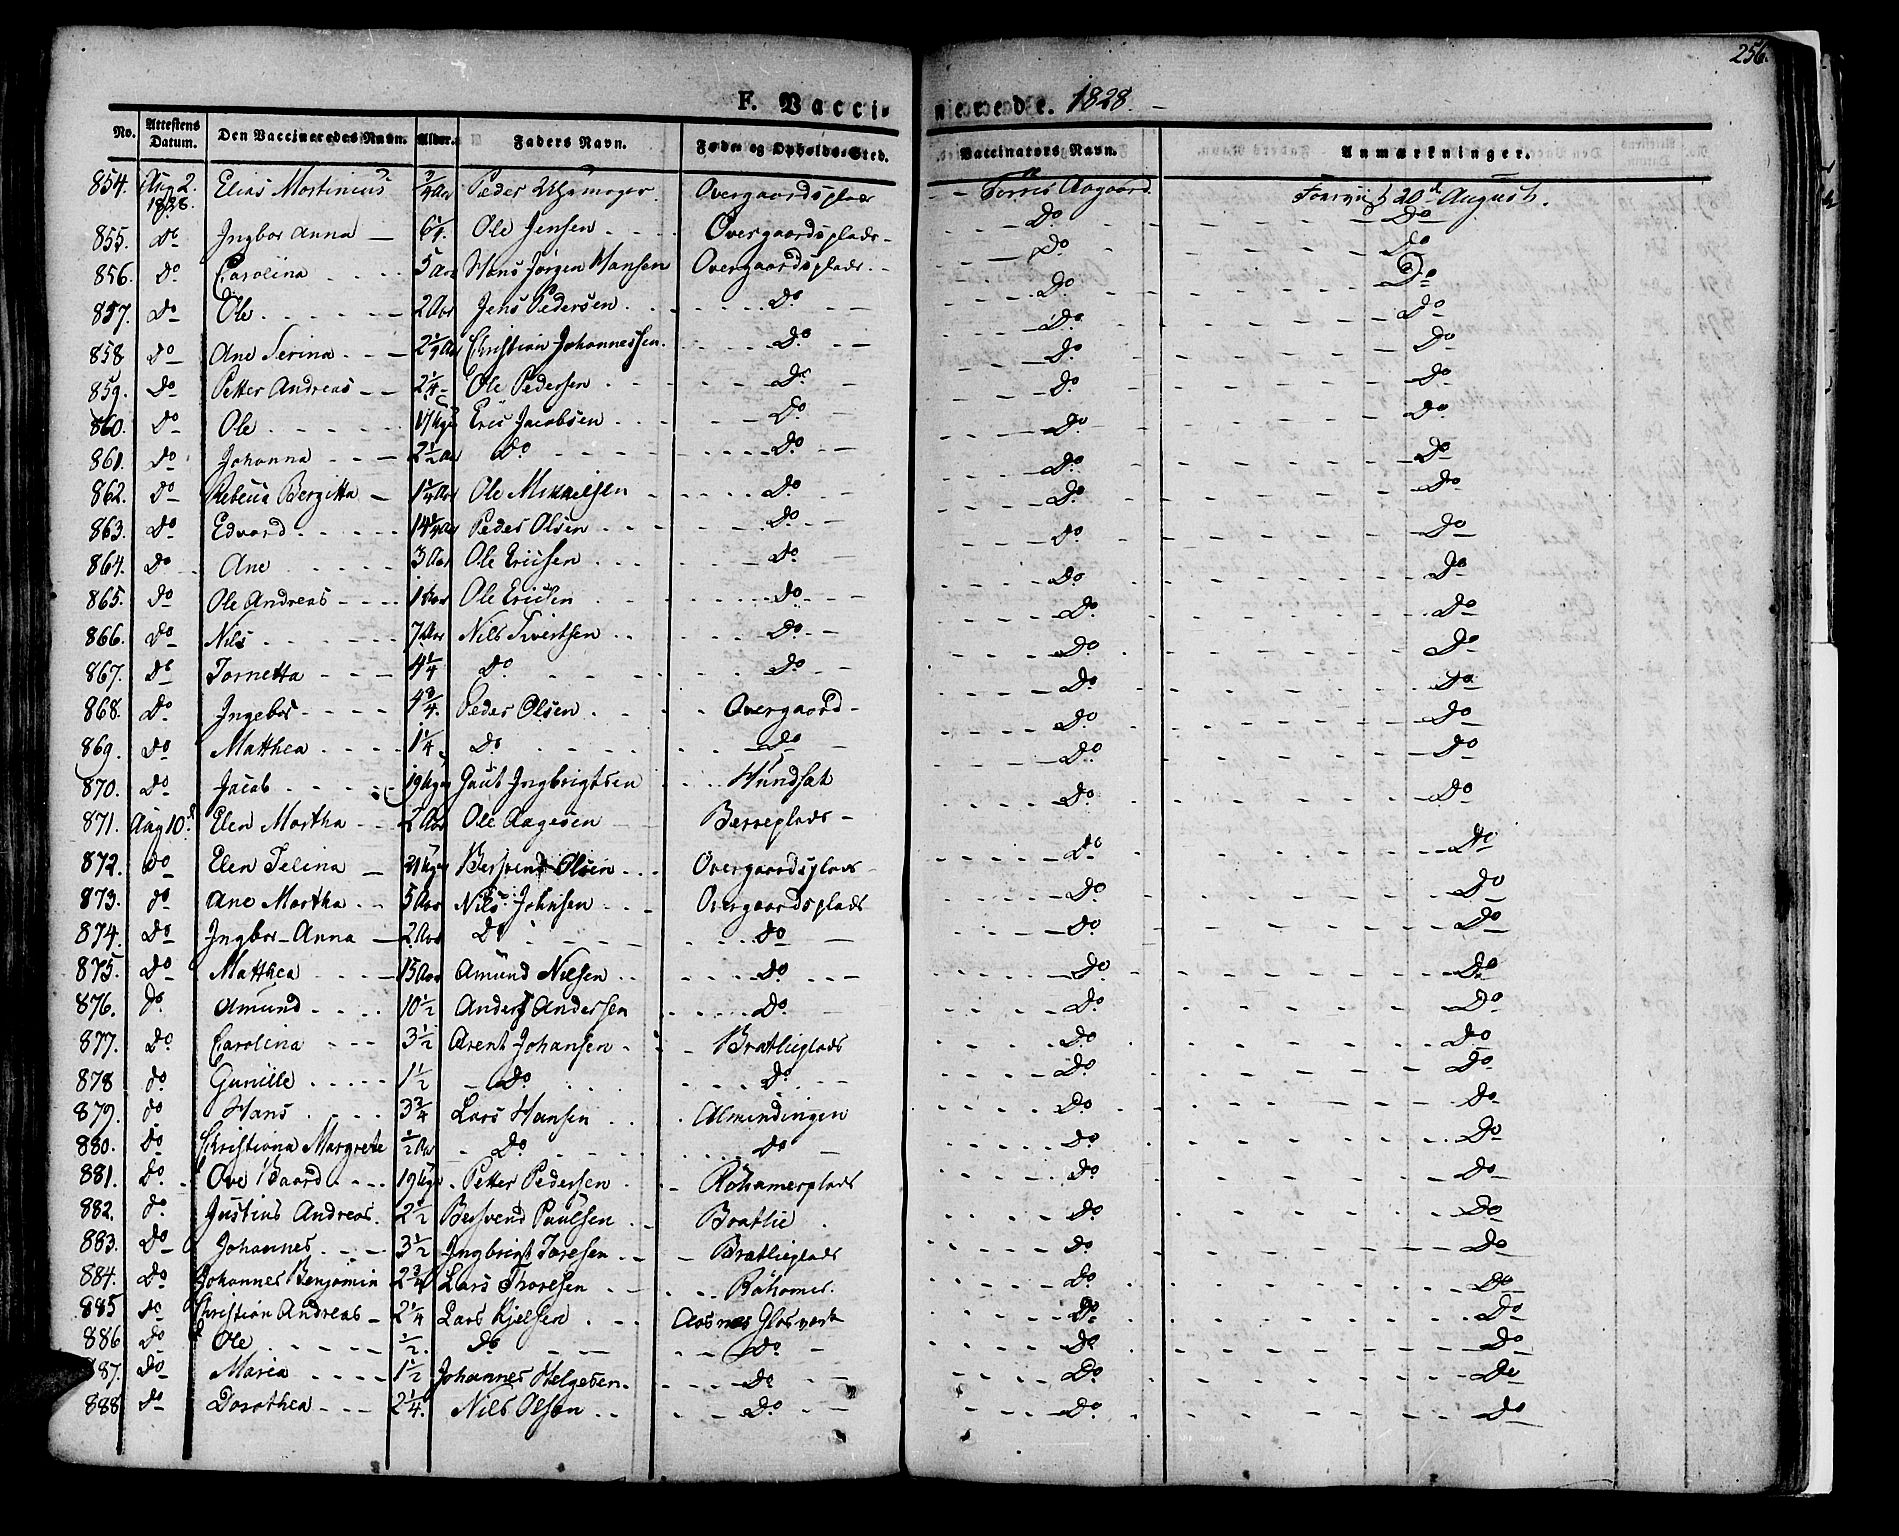 256.
F. Vaccinerede. 1828.
No. Attestens Datum. Den Vaccineredes Navn. Alder. Faders Navn. Føde og Opholds-Sted. Vaccinators Navn. Anmærkninger.
854. Aug 2. 1828. Elias Mortinius 3/4 Aar Peder Overgaardsplads Torris Aagaard 20d August.
855. do Ingbor Anna 6 Ole Jensen Overgaardsplads Do Do
856. do Carolina 5 Aar Hans Jørgen Hansen Overgaardsplads Do Do
857. Do Ole 2 Aar Jens Pedersen Do Do Do
858 Do Ane Serina 2 1/4 Aar Christian Johannessen Do Do Do
859. Do Petter Andreas 2 1/4 Ole Pedersen Do Do Do
860. Do Ole 17 Uger Eric Jacobsen Do Do Do
861. Do Johanna 2 1/2 Aar Do Do Do Do
862. Do Rebecca Bergitta 1 1/4 Aar Ole Mikkelsen Do Do Do
863. Do Edvard 14 1/4 Aar Peder Olsen Do Do Do
864. Do Ane 3 Aar Ole Ericsen Do Do Do
865. Do Ole Andreas 1 Aar Ole Ericsen Do Do Do
866. Do Nils 7 Aar Nils Sivertsen Do Do Do
867. Do Tornetta 4 1/4 Do Do Do Do
868. Do Ingebor 4 3/4 Peder Olsen Overgaard Do Do
869. Do Matthea 1 1/4 Do Do Do Do
870. Do Jacob 19 Uger Gaut Ingbrigtsen Hundsæt Do Do
871. Aug 10d Elen Martha 2 Aar Ole Aagesen Berreplads Do Do
872. Do Elen Selina 21 Uger Bersvend Olsen Overgaardsplads Do Do
873. do Ane Martha 5 Aar Nils Johnsen Overgaardsplads Do Do
874. Do Ingbor-Anna 2 Aar Do Do Do Do
875. Do Matthea 15 Aar Amund Nilsen Do Do Do
876. do Amund 10 1/2 Anders Andersen Do Do Do
877. Do Carolina 3 1/2 Arent Johansen Bratlieplads Do Do
878 do Gunille 1 1/2 Do Do Do Do
879. do Hans 3 3/4 Lars Hansen Almindingen Do Do
880. Do Christiana Margrete 1/2 Aar Do Do Do Do
881. Do Ove Baard 19 Uger Petter Pedersen Röhamerplads Do Do
882. do Justius Andreas 2 1/2 Bersvend Paulsen Bratlie Do Do
883. Do Johannes 3 1/2 Ingbrigt Toresen Bratlieplads Do Do
884. Do Johannes Benjamin 2 3/4 Lars Thoresen Röhamer. Do Do
885 do Christian Andreas 2 1/4 Lars Kjelsen Aasnes Glasverk Do Do
886 Do Ole 1/2. do Do Do Do
887. Do Maria 1 1/2 Johannes Helgesen Do Do Do
888 Do Dorothea 2 1/4. Nils Olsen Do Do Do